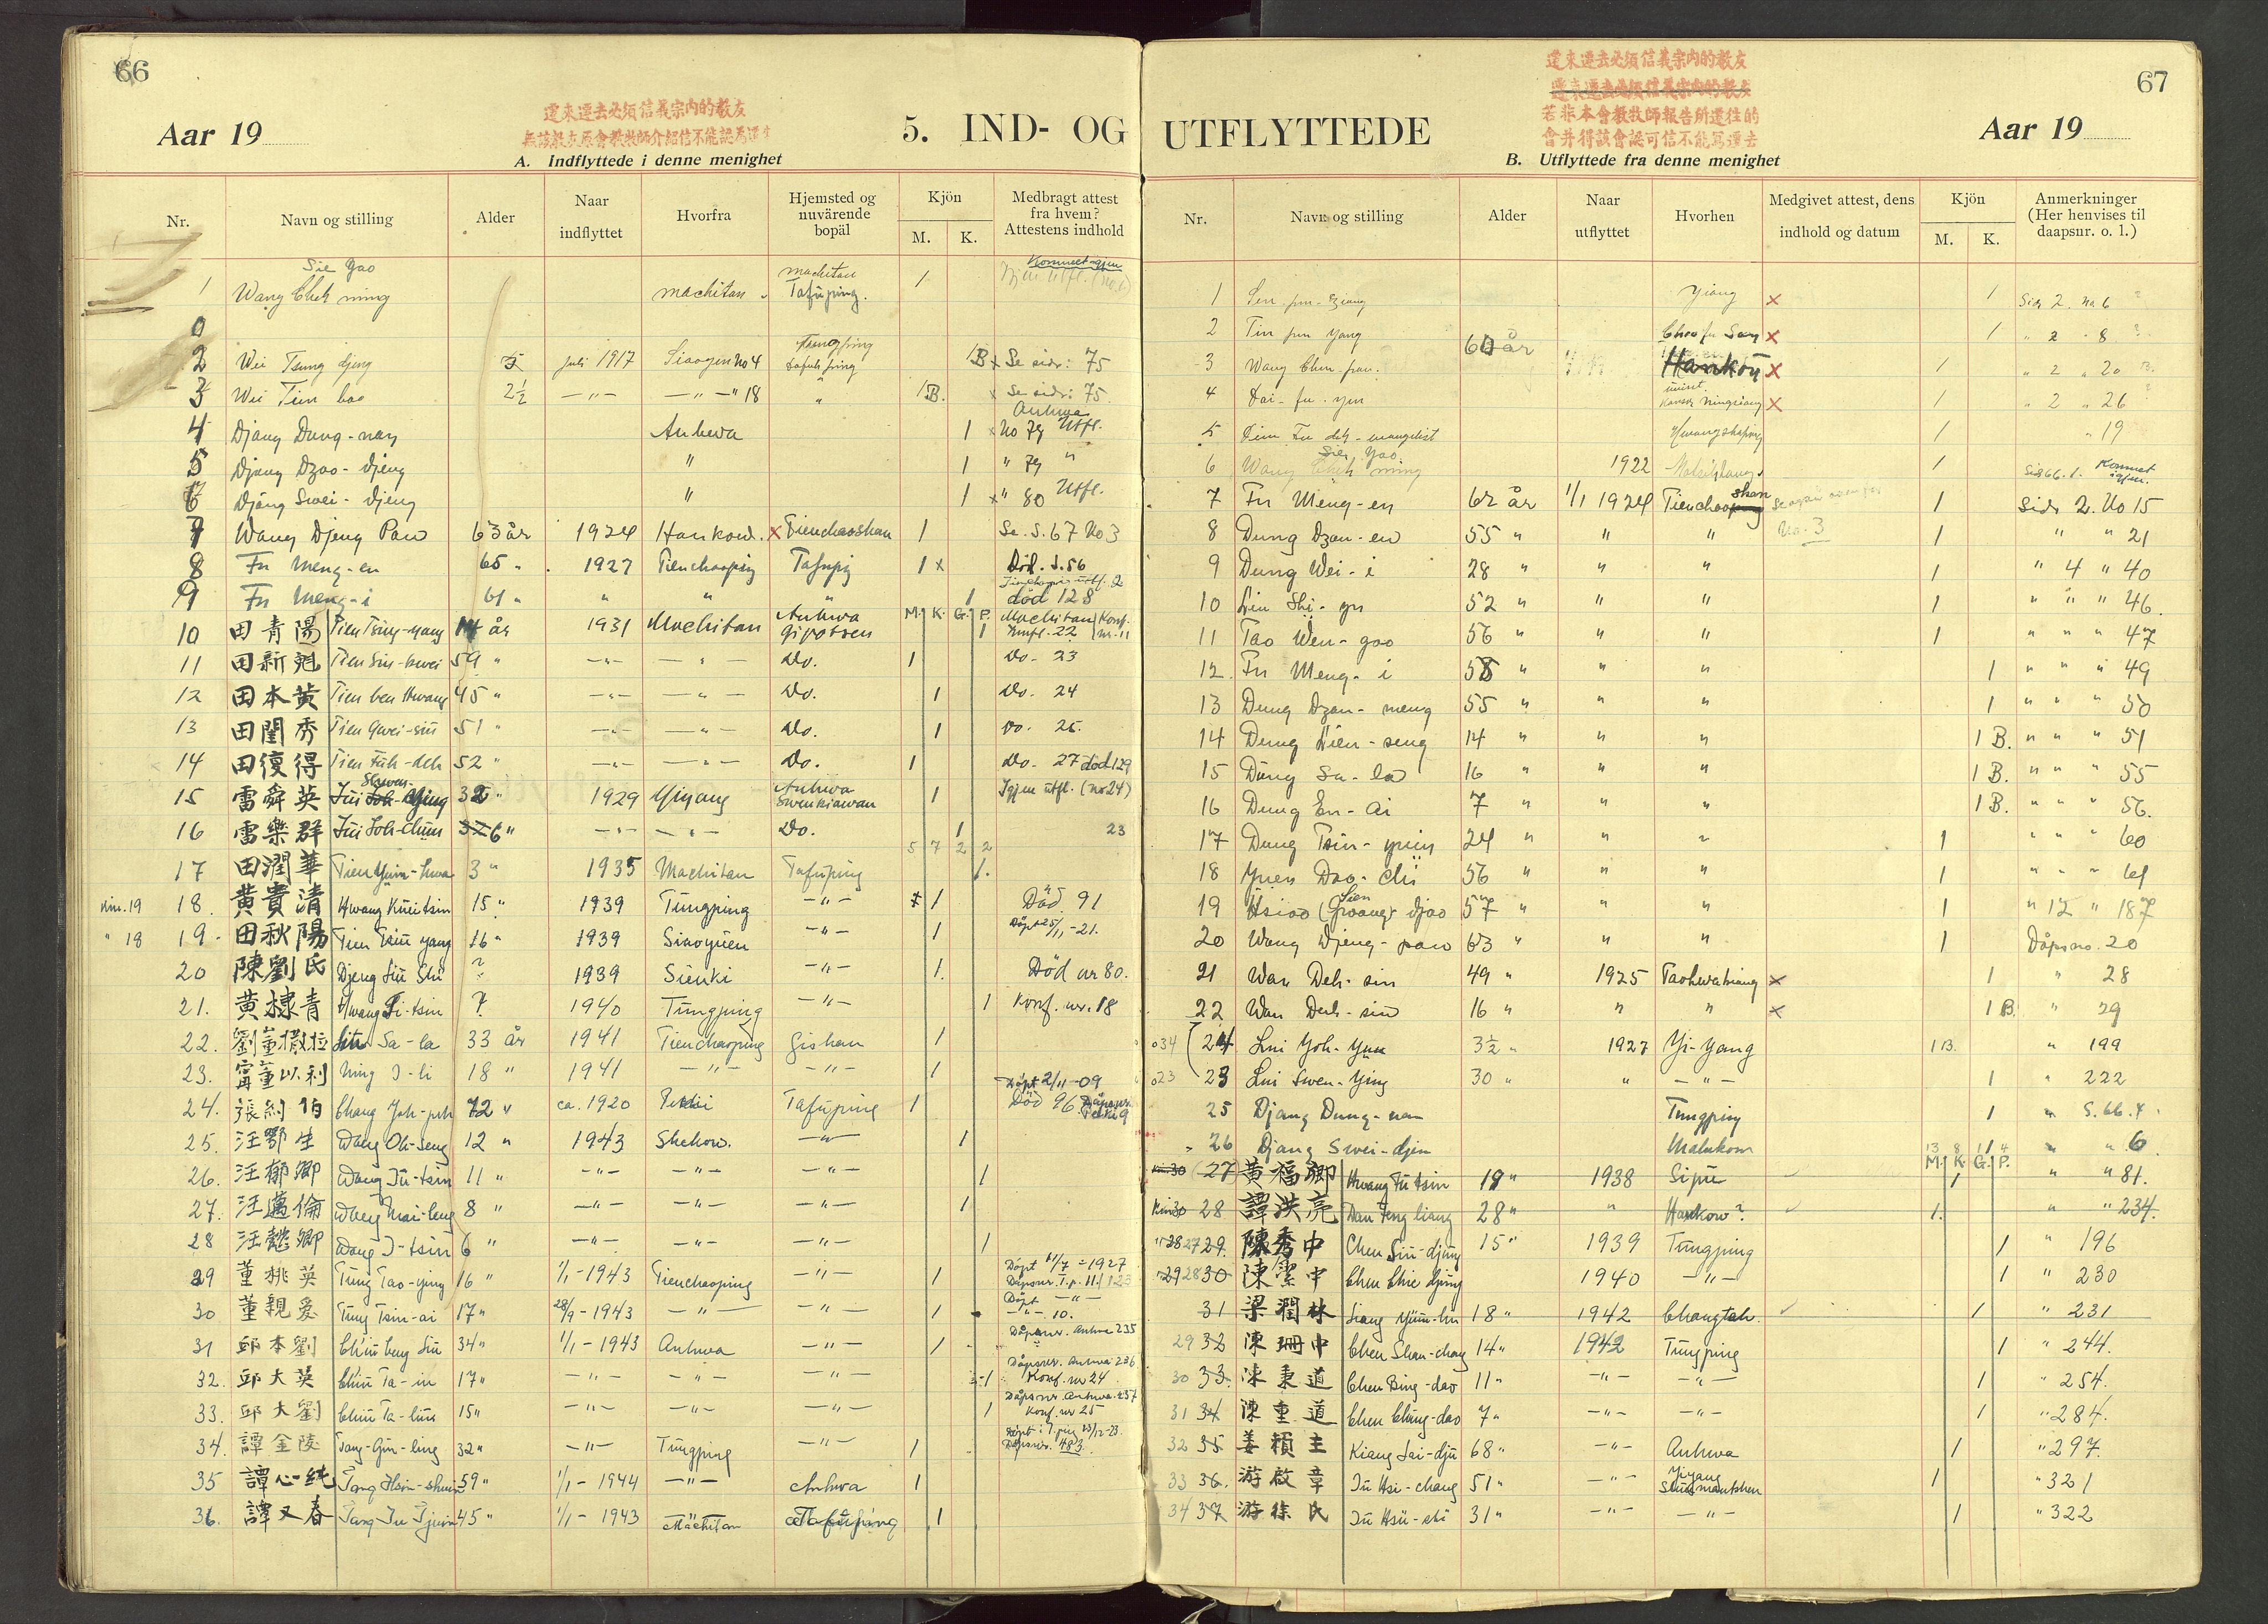 66
遷來遷去必須信義宗內的教友
Aar 19
5. IND- OG
A. Indflyttede i denne menighet
Nr. Navn og stilling Alder Naar indflyttet Hvorfra Hjemsted og nuvärende bopäl Kjön M. K. Medbragt attest fra hvem? Attestens indhold
Sie Yao
1 Wang Cheh ning machitan machitan Tafuping. 1
0
2 Wei Tsung djeng Juli 1917 Siaoyen No 4 1B x Se side: 75
3 Wei Tien bao 2½ —"— —"—" 18 " 1B. x Se side: 75.
4 Djang Dung-nan Anhwa 1 x No 79 Utfl.
5 Djang Dzao-djeng " 1 " 79 "
6 Djang Swei-djeng " 1 x " 80 Utfl.
7 Wang Djeng Pao 63 år 1924 Hankow. x Tienchaoshan 1 Se. S. 67 No 3
8 Fu Meng-en 65 " 1927 Tienchaoping Tafuping 1 x Död. S. 56
9 Fu Meng-i 61 " " " " 1 död 128
M. K. G. P.
10 田青陽 Tien Tsing-yang 14 år 1931 Machitan Anhwa 1 Machitan Konf. nr. 11
11 田新魁 Tien Sin-kwei 59 " —"— —"— Do. 1 Do - 23
12 田本黃 Tien ben Hwang 45 " —"— —"— Do. 1 Do. 24
13 田閨秀 Tien Gwei-siu 51 " —"— —"— Do. 1 Do. 25.
14 田復得 Tien Fuh-deh 52 " —"— —"— Do. 1 Do- 27 död 129
15 雷舜英 Lui Shwen-Ying 32 " 1929 Yiyang Anhwa 1 Igjen utfl. (no 24)
16 雷樂群 Lui Loh-Chün 6 " —"— —"— Do. 1 23
5 7 2 2
17 田潤華 Tien Yüin-hwa 3 " 1935 Machitan Tafuping 1.
18. 黃貴清 Hwang Kuei tsin 15 " 1939 Tungping —"— 1 Död 91
" 18 19 田秋陽 Tien Tsiu yang 16 " 1939 Siaoyuen —"— 1
20 陳劉氏 Djeng Liu Shi ? 1939 Sienki —"— 1. Död nr 80.
21. 黃棣青 Hwang Ti-tsin ? 1940 Tungping —"— 1 Konf. nr. 18
22. 劉董撒拉 Liu Sa-la 33 år 1941 Tienchaoping Gishan 1
23. 甯董以利 Ning I-li 18 " 1941 —"— —"— 1
24. 張約伯 Chang Joh-peh 72 " ca. 1920 Tafuping 1 Döpt 2/11-09 Död 96.
25. 汪鄂生 Wang Oh-Seng 12 " 1943 Shehow. —"— 1
26. 汪郁卿 Wang Jü-tsin 11 " —"— —"— —"— 1
27. 汪邁倫 Wang Mai-leng 8 " —"— —"— —"— 1
28 汪懿卿 Wang I-tsin 6 " —"— —"— —"— 1
29 董桃英 Tung Tao-ying 16 " 1/1-1943 Tienchaoping —"— 1
30 董親愛 Tung Tsin-ai 17 " 28/9-1943 —"— —"— 1 —"— 10.
31 邱本劉 Chiu beng Liu 34 " 1/1-1943 Anhwa —"— 1 Däpsnr. Anhwa 235
32. 邱大英 Chiu Ta-in 17 " —"— —"— —"— 1 Däpsnr. Anhwa 236 Konf. nr 24
33. 邱大劉 Chiu Ta-liu 15 " —"— —"— —"— 1 Däpsnr. Anhwa 237 Konf. nr 25
34. 譚金陵 Tang-Gin-ling 32 " —"— Tungping —"— 1 Däpsnr. 483.
35 譚心純 Tang Hsin-shuin 59 " 1/1-1944 —"— Anhwa 1
36. 譚又春 45 " 1/1-1943 Machitan Tafuping 1
67
遷來遷去必須信義宗內的教友
遷來遷去必須信義宗內的教友
若非本會教牧師報告所遷往的
會并得該會認可信不能寫遷去
UTFLYTTEDE
Aar 19
B. Utflyttede fra denne menighet
Nr. Navn og stilling Alder Naar utflyttet Hvorhen Medgivet attest, dens indhold og datum Kjön M. K. Anmerkninger (Her henvises til daapsnr. o. l.)
1 Yiang x 1 Side 2. No 6
2 Tin yang x 1 " 2 " 8
3 Wang Chen pau. 60 år Hankow x 1 " 2 " 20
4 Dai-fu-yun x 1 " 2 " 26
5 evangelist Hwangshaping 1 " 19
6 Wang Cheh ning Sie Yao 1922 1 Side 66. 1. Kommet igjen.
7 Fu Meng-en 62 år 1/1 1924 Tienchaoshan 1 Side 2. No 15
8 Dung Dzan-en 55 " " " No. 3 1 " " 21
9 Dung Wei-i 28 " " " 1 " 4 " 40
10 Liu Shi-yu 52 " " " 1 " " " 46.
11 Tao Wen-gao 56 " " " 1 " " " 47
12. Fu Meng-i 58 " " " 1 " " " 49
13 Dung Dzan-meng 55 " " " 1 " " " 50
14 Dung Lien-seng 14 " " " 1 B. " " " 51
15 Dung Sa-la 16 " " " 1 B. " " " 55
16 Dung En-ai 7 " " " 1 B. " " " 56.
17 Dung Tsin-yuin 24 " " " 1 " " " 60
18 Yuen Dao-chi 56 " " " 1 " " " 61
19 Hsiao (Gwang) Lien djao 57 " " " 1 " 12 " 187
20 Wang Djeng-pao 63 " " " 1 Dåpsno. 20
21 Wan Deh-sin 49 " 1925 Taohwakiang x 1 " 28
22 Wan Deh-siu 16 " " " x 1 B. " 29
24 Lui Yoh-Yün 3½ " 1927 Yi-yang 1 B. " 199
23 Lui Swen-Ying 30 " " —"— 1 " 222
25 Djang Dung-nan Tungping 1 " S. 66. 4
26 Djang Swei-djen Malukow 1 " " 6
M. K. G. P.
27 黃福卿 Hwang Fu tsin 19 " 1938 Sipu 1 " " 81.
28 譚洪亮 Dan Feng liang 28 " " Hankow? 1. " " 234.
29. 陳秀中 Chen Siu-djung 15 " 1939 Tungping 1 " 196
30 陳潔中 Chen Chie djung 1940 —"— 1 " 230
31 梁潤林 Liang Yüin-lin 18 " 1942 Changteh. 1 " 231
29 32 陳珊中 Chen Shan-chong 14 " 1942 Tungping 1 " 244.
30 33. 陳秉道 Chen Bing-dao 11 " —"— —"— 1 " 254.
31 34 陳重道 Chen Chung-dao 7 " —"— —"— 1 " 284.
32 35 姜賴主 Kiang Lai-dju 68 " —"— Anhwa 1 " 297.
33 36. 游啟章 Ju Hsi-chang 51 " —"— Yiyang 1 " 321
34 37 游徐氏 Ju Hsü-shi 31 " —"— —"— 1 " 322